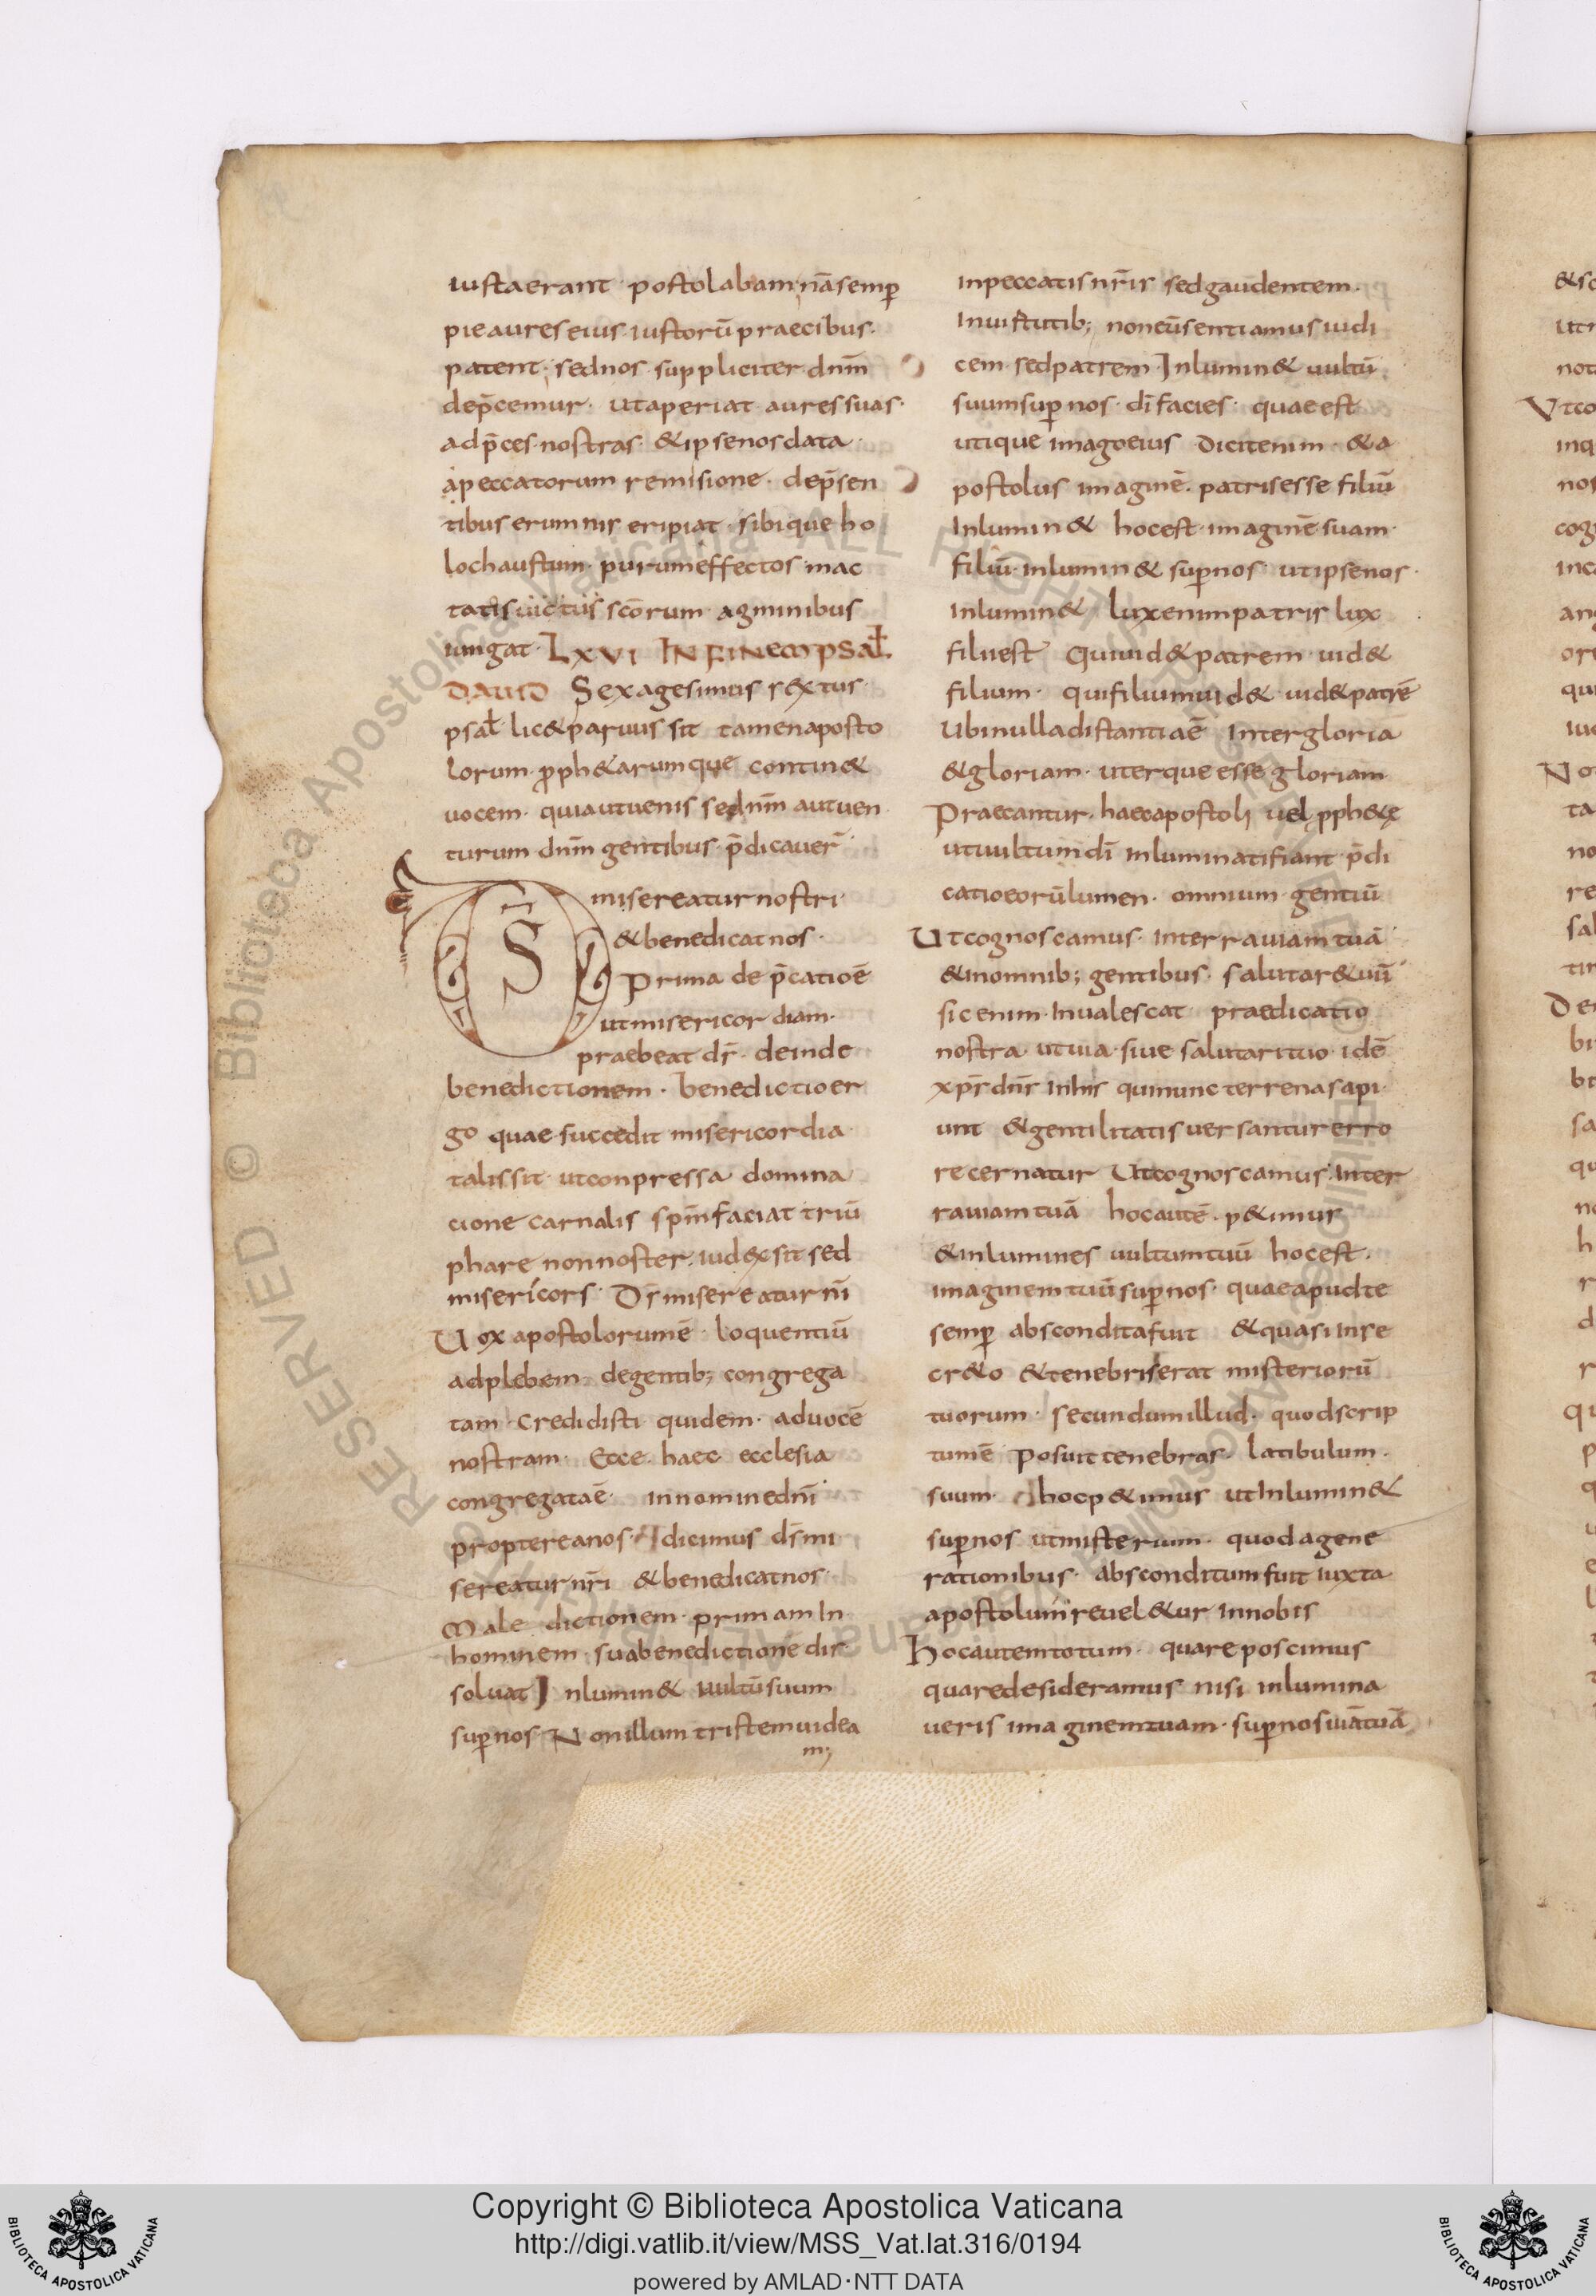 iustaerant· postolabam; nāsemp̄
pieaures eius iustorū praecibus·
patent; sednos suppliciter dnm̄
dep̄cemur· utaperiat aures suas·
adp̄ces nostras &ipsenosdata
apeccatorum remisione· dep̄sen
tibus erumnis eripiat· sibique ho
lochaustum· purumeffectos mac
tatis uictus scōrum agminibus
iungat· LXVI IN FINEM PSAł
DAUID Sexagesimus sextus·
psał lic&paruus sit tamenaposto
lorum· ꝓph&arumque contin&
uocem· quiautuenis sednm̄ autuen
turum dnm̄ gentibus· p̄dicauer̄
D̄S misereatur nostri·
&benedicat nos·
Prima de p̄catioē
utmisericordiam·
praebeat dr̄· deinde
benedictionem· benedictioer
go quae succedit misericordia
talissit· utconpressa domina
cione carnalis spm̄faciat triū
phare nonnoster· iudexsit sed
misericors· Ds̄ misereatur nr̄i
Uox apostolorumē· loquentiū
adplebem· degentib; congrega
tam· credidisti quidem· aduocē
nostram· Ecce· haec ecclesia
congregataē· innominednī
proptereanos· dicimus ds̄ mi
sereatur nr̄i &benedicatnos·
Male dictionem· primam In
hominem suabenedictione dis
soluat Inlumin& uultū suum
sup̄nos Nonillum tristemuidea
m;
inpeccatis nr̄is sedgaudentem·
Inuirtutib; noneūsentiamus iudi
cem sedpatrem· Inlumin& uultū
suumsup̄ nos· dī facies· quae est
utique imagoeius dicitenim· &a
postolus imaginē· patrisesse filiū
Inlumin& hocest· imaginē suam·
filiū· inlumin& sup̄nos· utipsenos·
inlumin& luxenimpatris lux
filiiest Quiuid&patrem· uid&
filium· quifiliumuid& uid&patrē
Ubinulladistantiaē Intergloriā
&gloriam· uterqueesse gloriam
Praecantur· haecapostoli uel ꝓph&ę
utuultumdī inluminatifiant· p̄di
catioeorūlumen· omnium· gentiū
Utcognoscamus· Interrauiam tuā
&inomnib; gentibus· salutar&uū
sicenim· Inualescat praedicatio
nostra utuia· siue salutarituo· idē
xp̄s dns̄ inhis quinunc terrenasapi·
unt &gentilitatis uersanturerro
recernatur Utcognoscamus· Inter
rauiamtuā hocautē· p&imus
&inlumines uultumtuū hocest·
imaginem tuūsup̄nos· quaeapudte
semp̄ absconditafuit &quasi Inse
cr&o &tenebriserat misteriorū
tuorum· secundumillud· quodscrip
tumē Posuit tenebras· latibulum·
suum· hocp&imus utInlumin&
sup̄nos utmisterium· quodagene
rationibus· absconditumfuit iuxta
apostolum reuel&ur Innobis
Hocautemtotum· quareposcimus
quaredesideramus nisi inlumina
ueris imaginemtuam· sup̄nosuiātuā
Copyright © Biblioteca Apostolica Vaticana
http://digi.vatlib.it/view/MSS_Vat.lat.316/0194
powered by AMLAD·NTT DATA